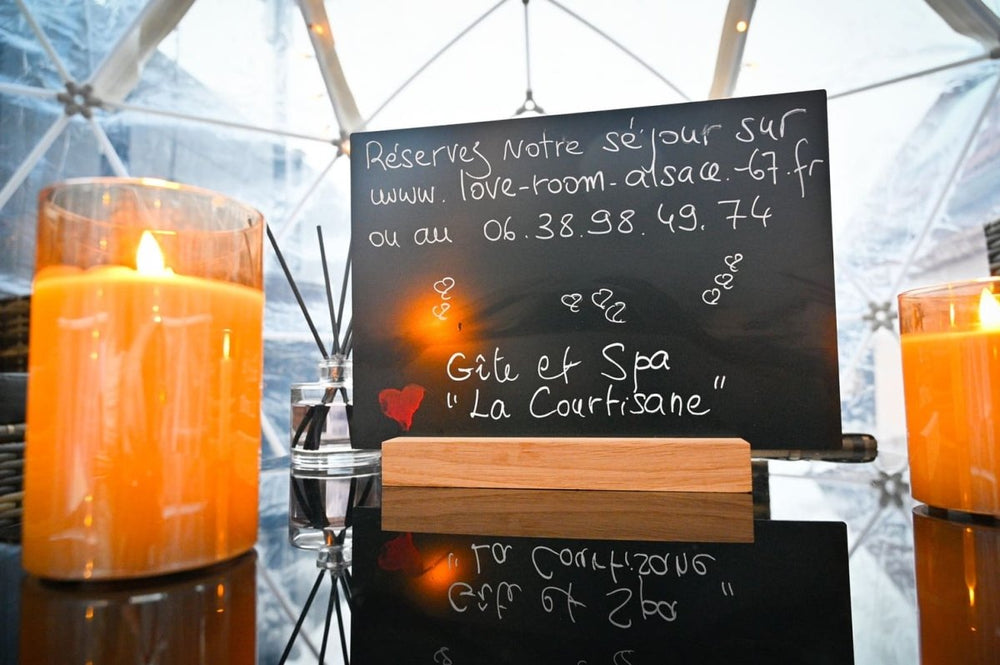 Réservez Notre séjour sur
www.love-room-alsace-67.fr
ou au 06.38.98.49.74
Gîte et Spa
"La Courtisane"